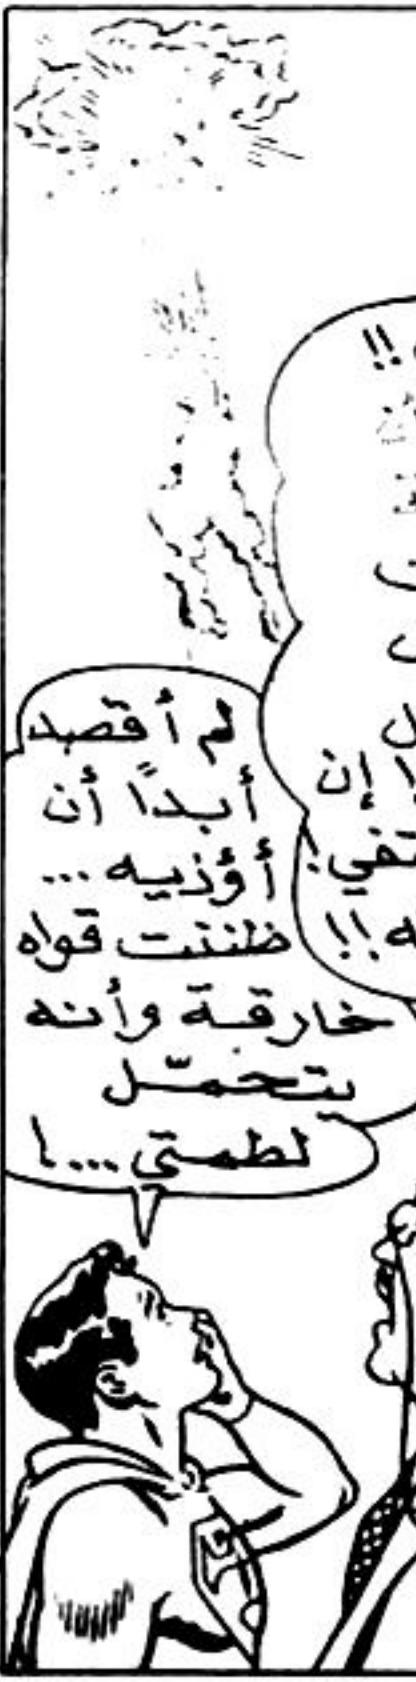 !!
إن
تفي!
ـه!!
لم أقصد
أبداً أن
أؤذيه ...
ظننت قواه
خارقة وأنه
يتحمّل
لطمتي ....!